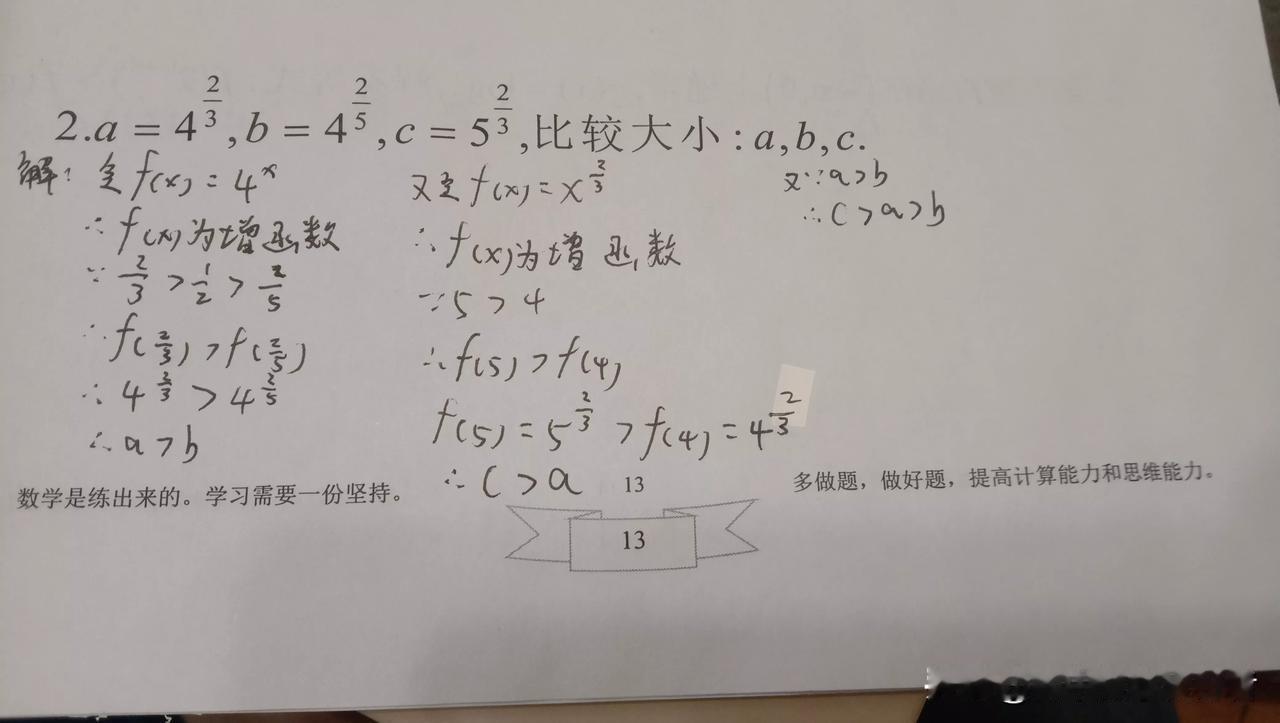 2.a = 4^{2/3}, b = 4^{2/5}, c = 5^{2/3}, 比较大小: a,b,c.
解: 令 f(x) = 4^x
∴ f(x)为增函数
∵ 2/3 > 1/2 > 2/5
∴ f(2/3) > f(2/5)
∴ 4^{2/3} > 4^{2/5}
∴ a > b
又令 f(x) = x^{2/3}
∴ f(x)为增函数
∵ 5 > 4
∴ f(5) > f(4)
f(5) = 5^{2/3} > f(4) = 4^{2/3}
∴ C > a
又∵ a > b
∴ C > a > b
数学是练出来的。学习需要一份坚持。
13
多做题，做好题，提高计算能力和思维能力。
13